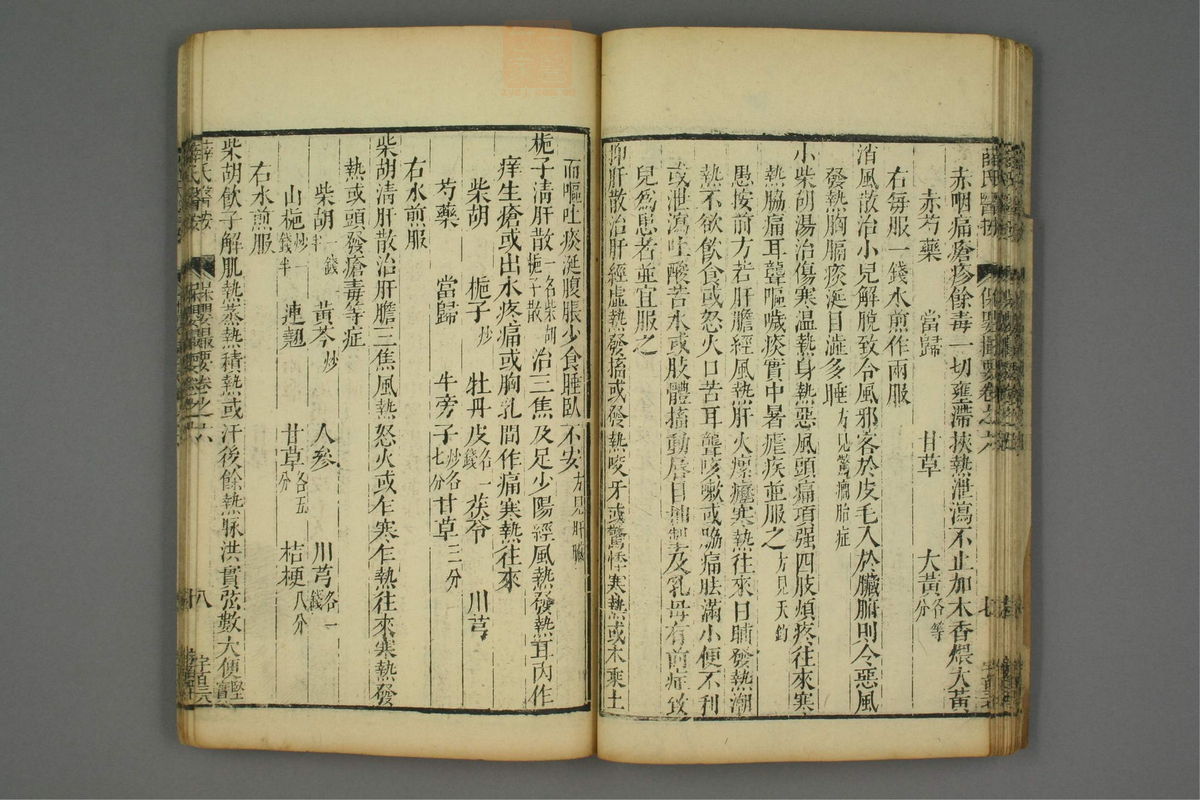 薛氏醫按 保嬰撮要卷之六 七
赤咽痛瘡疹餘毒一切壅滯挾熱泄瀉不止加木香煨大黃
赤芍藥 當歸 甘草 大黃各等分
右每服一錢水煎作兩服
消風散治小兒解脫致令風邪客於皮毛入於臟腑則令惡風
發熱胸膈痰涎目澁多睡方見驚癇胎症
小柴胡湯治傷寒温熱身熱惡風頭痛項强四肢煩疼往來寒
熱脇痛耳聾嘔噦痰實中暑瘧疾並服之方見天釣
愚按前方若肝膽經風熱肝火瘰癧寒熱往來日晡發熱潮
熱不欲飲食或怒火口苦耳聾咳嗽或脇痛胠滿小便不利
或泄瀉吐酸苦水或肢體搐動唇目抽掣及乳母有前症致
兒爲患者並宜服之
抑肝散治肝經虛熱發搐或發熱咬牙或驚悸寒熱或木乘土
而嘔吐痰涎腹脹少食睡臥不安方見肝臟
梔子清肝散一名柴胡梔子散治三焦及足少陽經風熱發熱耳內作
痒生瘡或出水疼痛或胸乳間作痛寒熱往來
柴胡 梔子炒 牡丹皮各一錢 茯苓 川芎
芍藥 當歸 牛旁子炒各七分 甘草二分
右水煎服
柴胡清肝散治肝膽三焦風熱怒火或乍寒乍熱往來寒熱發
熱或頭發瘡毒等症
柴胡一錢半 黃芩炒 人參 川芎各一錢
山梔炒一錢半 連翹 甘草各五分 桔梗八分
右水煎服
柴胡飲子解肌熱蒸熱積熱或汗後餘熱脉洪實弦數大便堅實
薛氏醫按 保嬰撮要卷之六 八